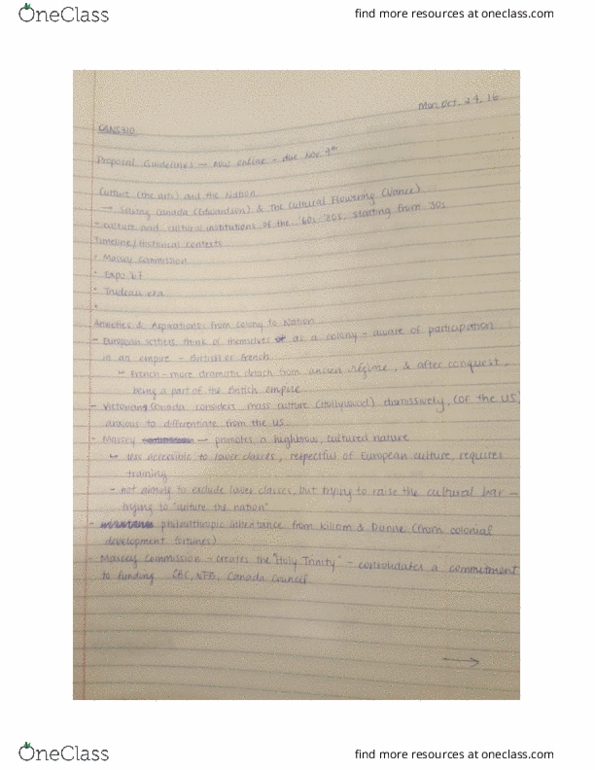 OneClass
find more resources at oneclass.com
Mon, Oct. 24. 16
CANS310
Proposal Guidelines → now online - due Nov. 9th
Culture (the arts) and the Nation
→ Selling Canada (Edwardson) & The Cultural Flowering (Vance)
- culture and cultural institutions of the '60s '20s, starting from 30s
Timeline/Historical Contexts
• Massey Commission
• Expo 67
• Trudeau era
•
Anxieties & Aspirations: From Colony to Nation
- European settlers think of themselves as a colony - aware of participation
in an empire - British or French
↳ French - more dramatic detach from ancien régime, & after conquest,
being a part of the British empire.
- Victorian Canada considers mass culture (Hollywood) dismissively, (of the US)
anxious to differentiate from the US.
- Massey → promotes a highbrow, cultured nature
↳ less accessible to lower classes, respectful of European culture, requires
training
- not aiming to exclude lower classes, but trying to raise the cultural bar -
trying to "culture the nation"
- philanthropic inheritance from Killam & Dunne (from colonial
development fortunes)
- Massey Commission - creates the "Holy Trinity" - consolidates a commitment
to funding CBC, NFB, Canada Council
→
OneClass
find more resources at oneclass.com